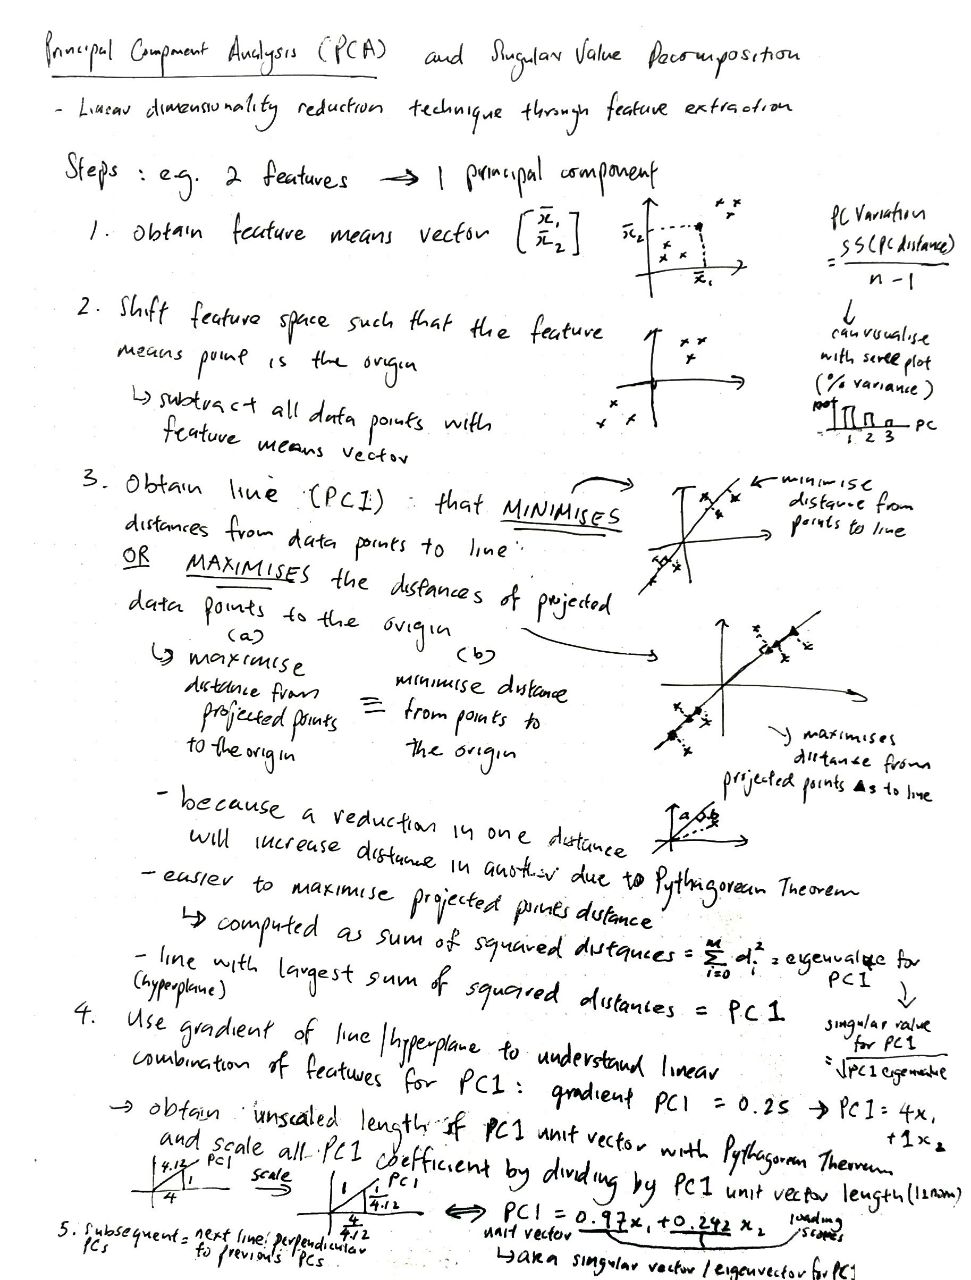 Principal Component Analysis (PCA) and Singular Value Decomposition
- Linear dimensionality reduction technique through feature extraction
Steps : e.g. 2 features → 1 principal component
1. obtain feature means vector [x̄₁ x̄₂]
x̄₂
x̄₁
PC Variation
= SS(PC distance) / n-1
↓
can visualise
with scree plot
(% variance)
1 2 3 PC
2. Shift feature space such that the feature
means point is the origin
↳ subtract all data points with
feature means vector
3. Obtain line (PC1) : that MINIMISES
distances from data points to line
OR MAXIMISES the distances of projected
data points to the origin
← minimise
distance from
points to line
(a)
↳ maximise
distance from
projected points
to the origin
≡
(b)
minimise distance
from points to
the origin
↘ maximises
distance from
projected points ▲s to line
- because a reduction in one distance
will increase distance in another due to Pythagorean Theorem
a b
- easier to maximise projected points distance
↳ computed as sum of squared distances = Σ dᵢ² = eigenvalue for
i=0
PC1
- line with largest sum of squared distances = PC1
(hyperplane)
↓
singular value
for PC1
= √PC1 eigenvalue
4. Use gradient of line/hyperplane to understand linear
combination of features for PC1 : gradient PC1 = 0.25 → PC1 = 4x₁
+1x₂
→ obtain unscaled length of PC1 unit vector with Pythagorean Theorem
and scale all PC1 coefficient by dividing by PC1 unit vector length (l2 norm)
4.12 PC1
1
4
scale →
PC1
1
1/4.12
4/4.12
⟺ PC1 = 0.97x₁ + 0.242 x₂
loading
scores
unit vector
↳ aka singular vector / eigenvector for PC1
5. Subsequent = next line perpendicular
PCs to previous PCs